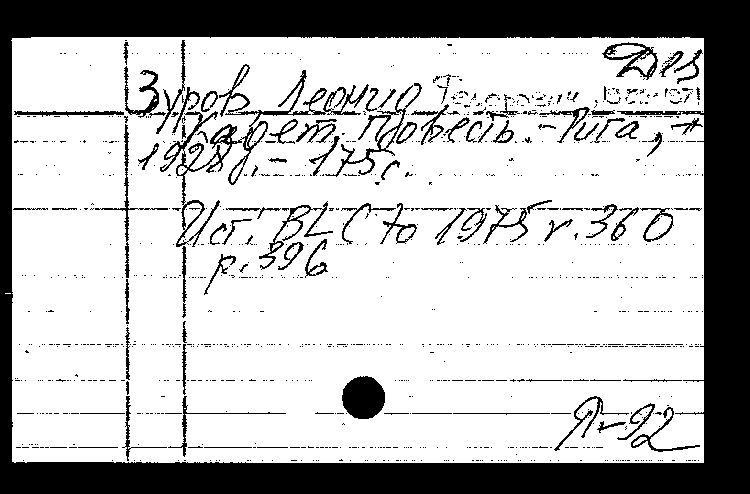 Des
Зуров Леонид Федорович, 1902-1971
Кадет. Повесть. - Рига,
1928г. - 175с.
Ист: BLC to 1975 v. 360
p. 396
Л-92